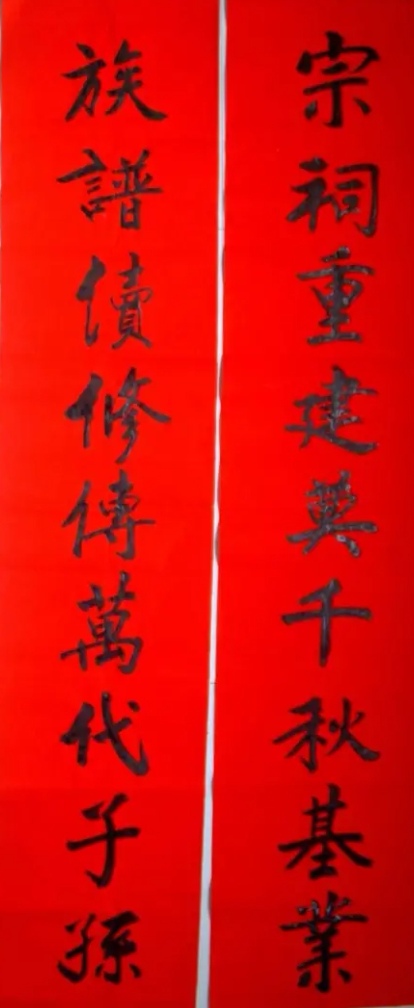 宗祠重建奠千秋基業
族譜續修傳萬代子孫